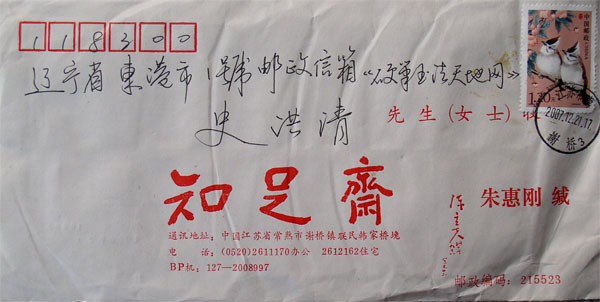 118300
中国邮政
1.20元
辽宁省東港市1號邮政信箱《硬筆书法天地网》
史洪清
先生(女士)收
2007.12.21.17
謝桥3
知足齋
朱惠刚 缄
通讯地址：中国江苏省常熟市谢桥镇联民韩家桥堍
电 话：(0520)2611170办公 2612162住宅
BP机：127—2008997
邮政编码：215523